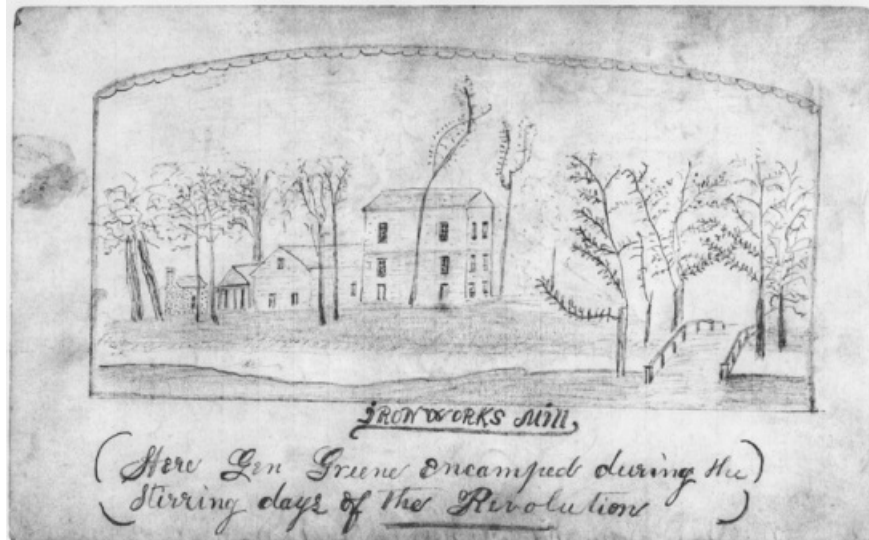 IRONWORKS Mill,
(Here Gen Greene encamped during the)
(Stirring days of the Revolution)